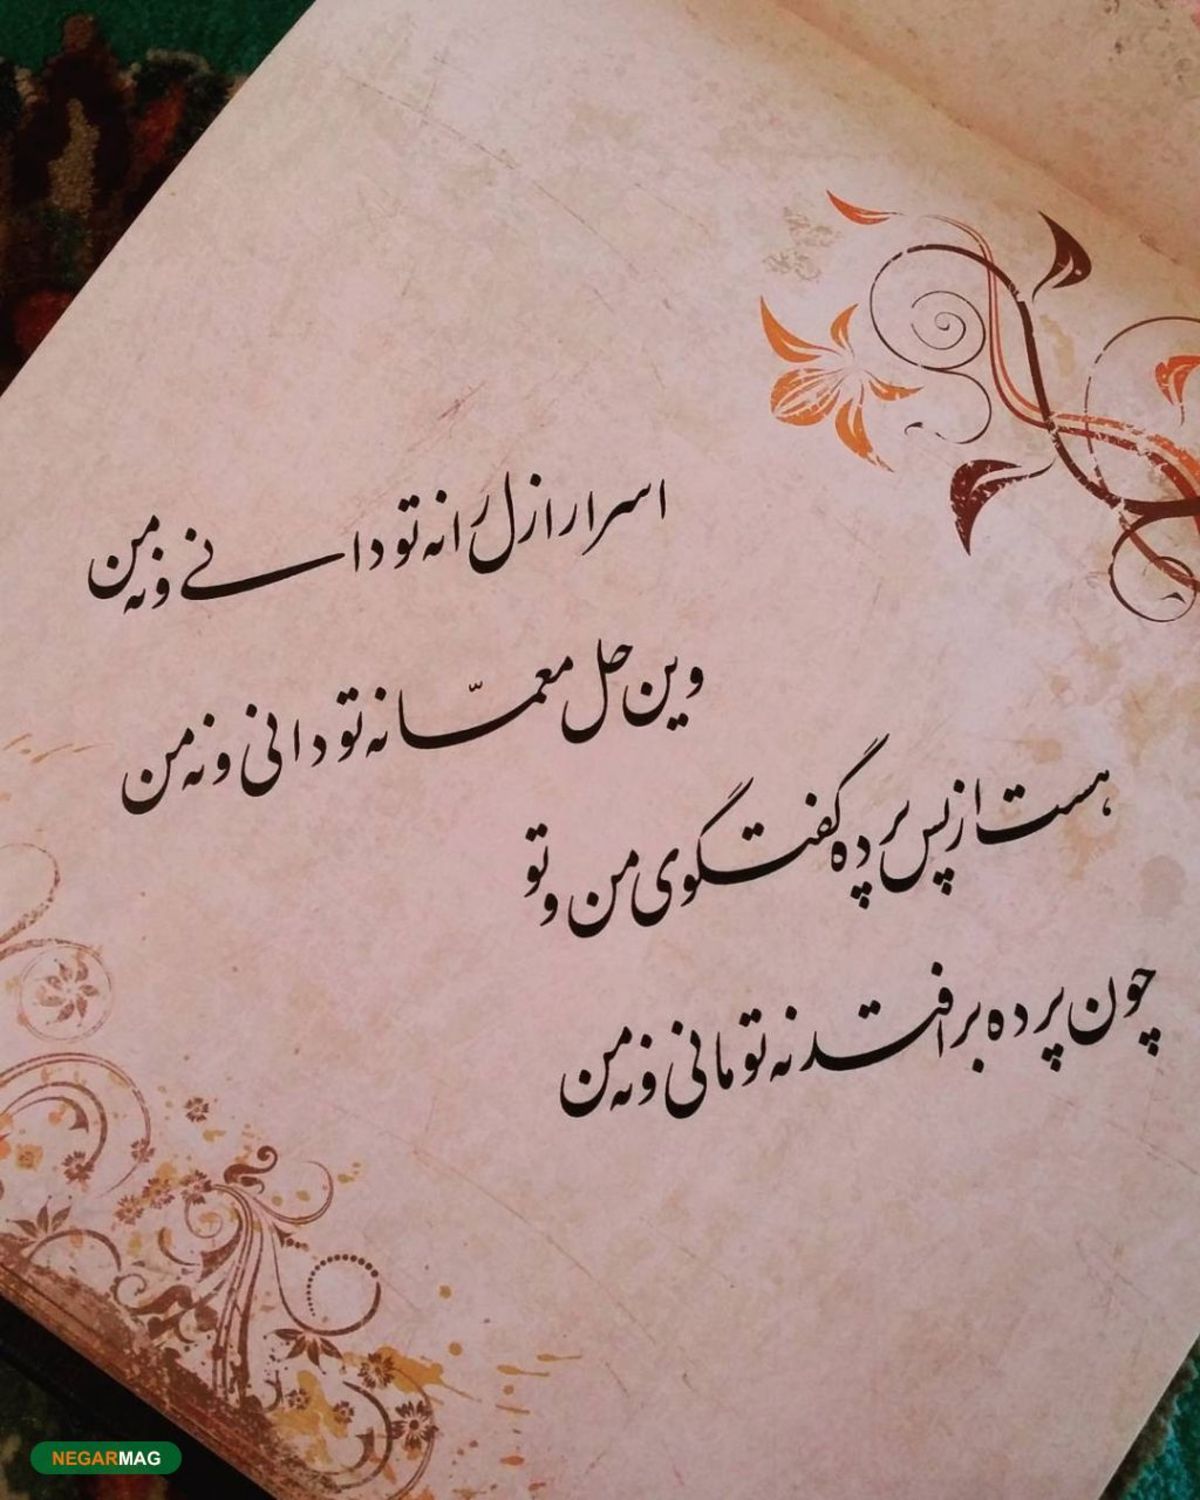 اسرار ازل را نه تو دانی و نه من
وین حل معمّا نه تو دانی و نه من
هست از پس پرده گفتگوی من و تو
چون پرده برافتد نه تو مانی و نه من
NEGARMAG